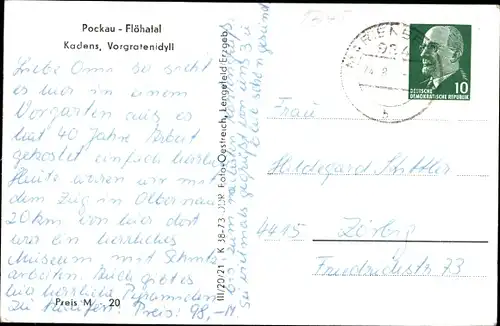 Pockau - Flöhatal
Kadens, Vorgratenidyll
Liebe Oma so sieht
es hier in einem
Vorgarten aus es
hat 40 Jahre Arbeit
gekostet einfach herrlich
Heute waren wir mit
dem Zug in Olbernau
20 km von hier dort
war ein herrliches
Museum mit Schnitz
arbeiten. Auch gibt es
hier herrliche Pyramiden
zu kaufen. Preis: 98,-M
Preis M 20
III/20/21 K 38-73 DDR Foto-Oestreich, Lengefeld/Erzgeb.
bis zum
Sei vielmals gegrüßt von uns
bleib schön gesund
DEUTSCHE
DEMOKRATISCHE REPUBLIK
10
Frau
Hildegard
4415 Zörbig
Friedrichstr 73